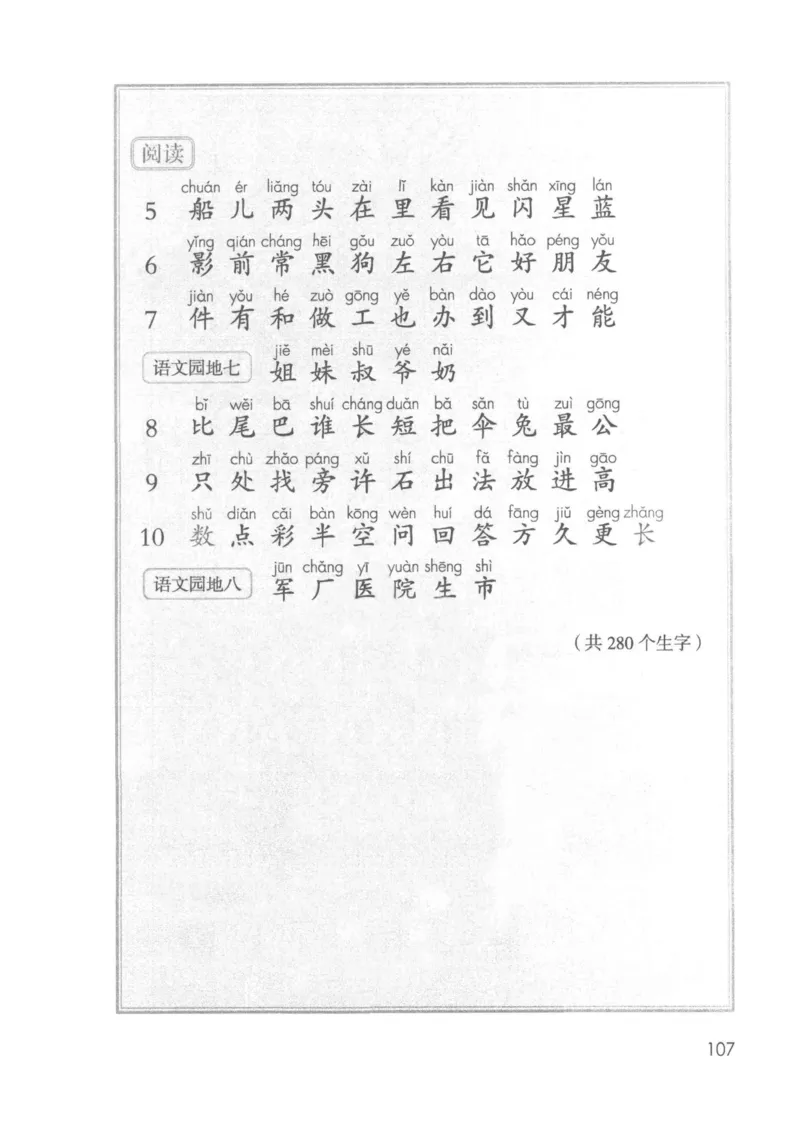 阅读
chuán ér liǎng tóu zài lǐ kàn jiàn shǎn xīng lán
5 船 儿 两 头 在 里 看 见 闪 星 蓝
yǐng qián cháng hēi gǒu zuǒ yòu tā hǎo péng yǒu
6 影 前 常 黑 狗 左 右 它 好 朋 友
jiàn yǒu hé zuò gōng yě bàn dào yòu cái néng
7 件 有 和 做 工 也 办 到 又 才 能
jiě mèi shū yé nǎi
语文园地七 姐 妹 叔 爷 奶
bǐ wěi bā shuí cháng duǎn bǎ sǎn tù zuì gōng
8 比 尾 巴 谁 长 短 把 伞 兔 最 公
zhī chù zhǎo páng xǔ shí chū fǎ fàng jìn gāo
9 只 处 找 旁 许 石 出 法 放 进 高
shǔ diǎn cǎi bàn kōng wèn huí dá fāng jiǔ gèng zhǎng
10 数 点 彩 半 空 问 回 答 方 久 更 长
jūn chǎng yī yuàn shēng shì
语文园地八 军 厂 医 院 生 市
（共 280 个生字）
107